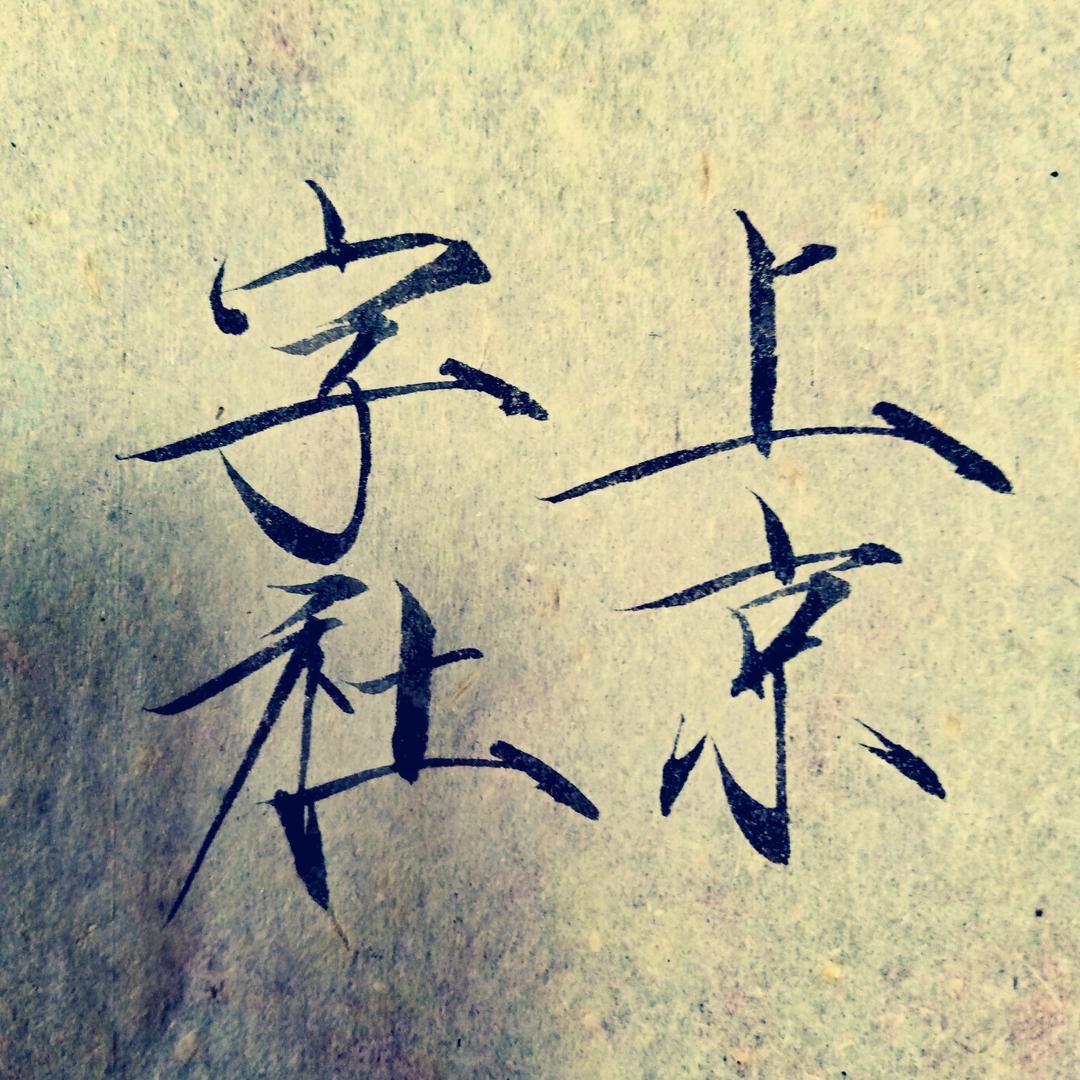 上京
字社